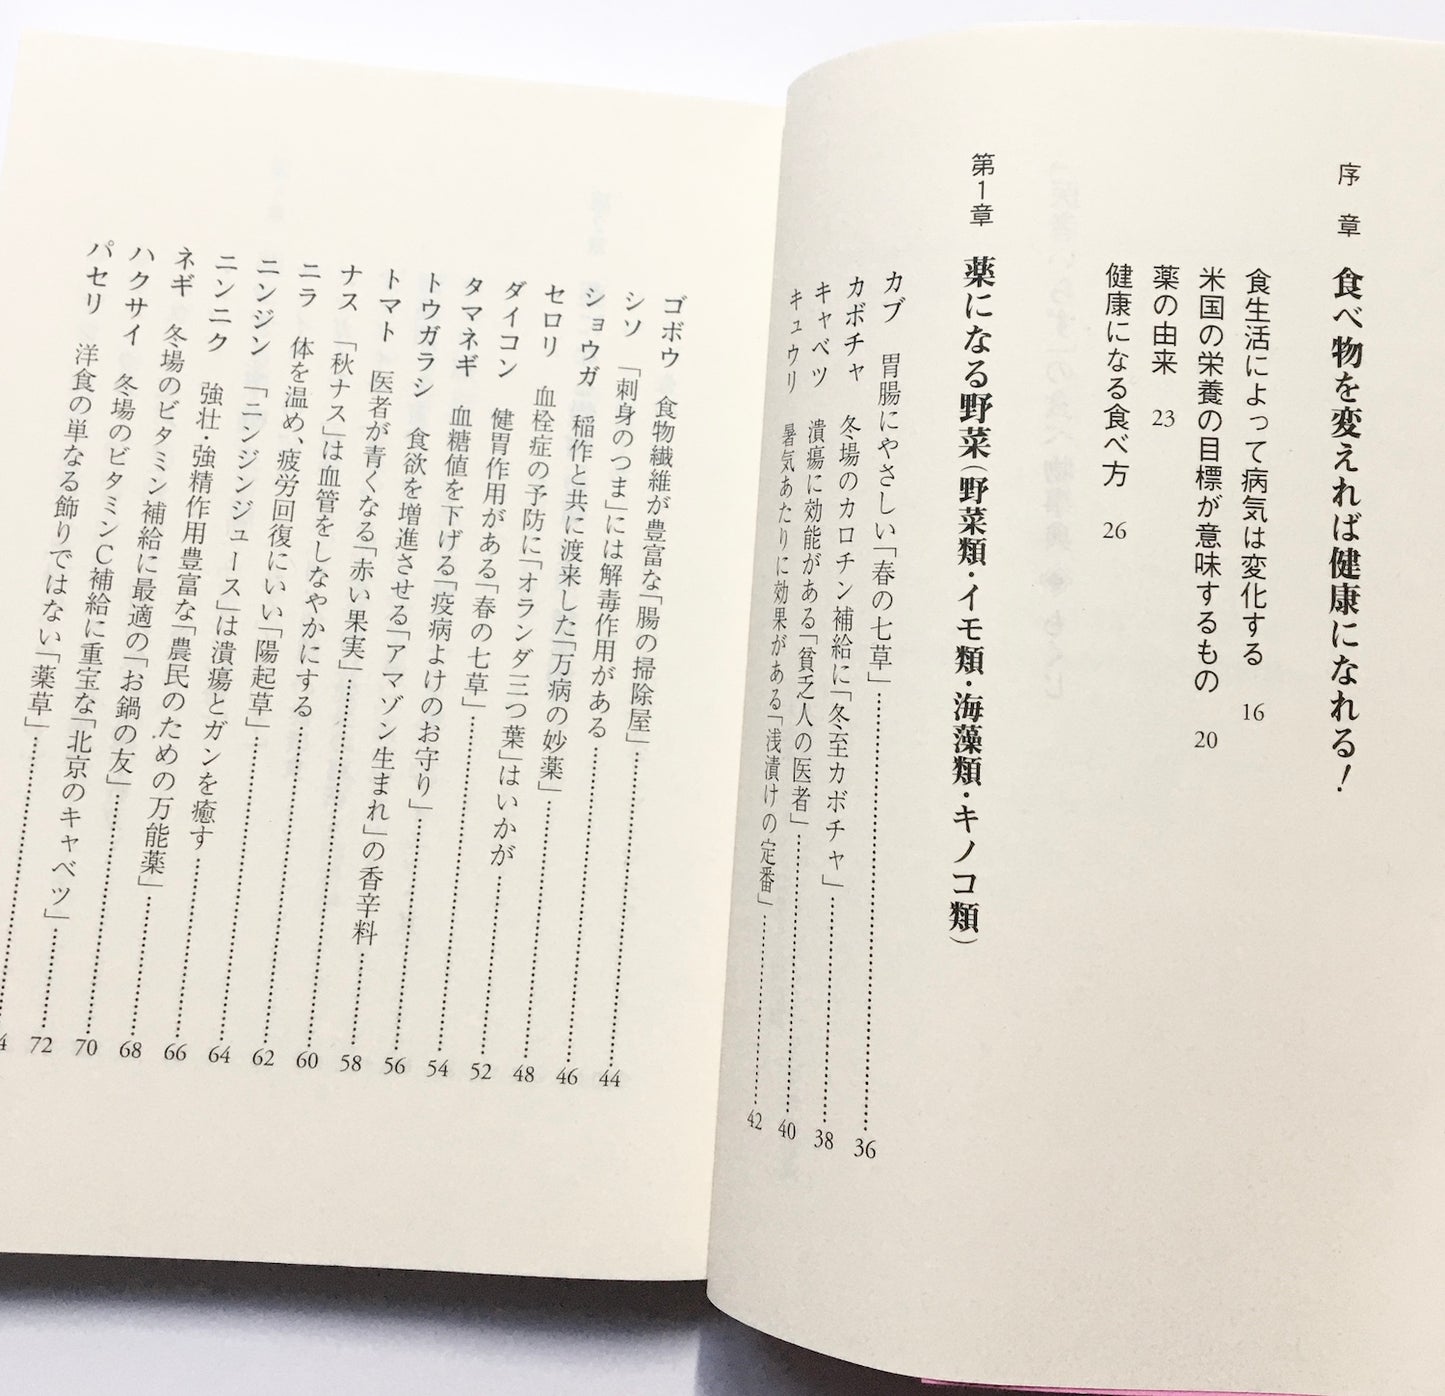 序章 食べ物を変えれば健康になれる！
食生活によって病気は変化する 16
米国の栄養の目標が意味するもの 20
薬の由来 23
健康になる食べ方 26
第1章 薬になる野菜（野菜類・イモ類・海藻類・キノコ類）
カブ 胃腸にやさしい「春の七草」 36
カボチャ 冬場のカロチン補給に「冬至カボチャ」 38
キャベツ 潰瘍に効能がある「貧乏人の医者」 40
キュウリ 暑気あたりに効果がある「浅漬けの定番」 42
ゴボウ 食物繊維が豊富な「腸の掃除屋」 44
シソ 「刺身のつま」には解毒作用がある 46
ショウガ 稲作と共に渡来した「万病の妙薬」 48
セロリ 血栓症の予防に「オランダ三つ葉」はいかが 52
ダイコン 健胃作用がある「春の七草」 54
タマネギ 血糖値を下げる「疫病よけのお守り」 56
トウガラシ 食欲を増進させる「アマゾン生まれ」の香辛料 58
トマト 医者が青くなる「赤い果実」 60
ナス 「秋ナス」は血管をしなやかにする 62
ニラ 体を温め、疲労回復にいい「陽起草」 64
ニンジン 「ニンジンジュース」は潰瘍とガンを癒す 66
ニンニク 強壮・強精作用豊富な「農民のための万能薬」 68
ネギ 冬場のビタミン補給に最適の「お鍋の友」 70
ハクサイ 冬場のビタミンC補給に重宝な「北京のキャベツ」 72
パセリ 洋食の単なる飾りではない「薬草」